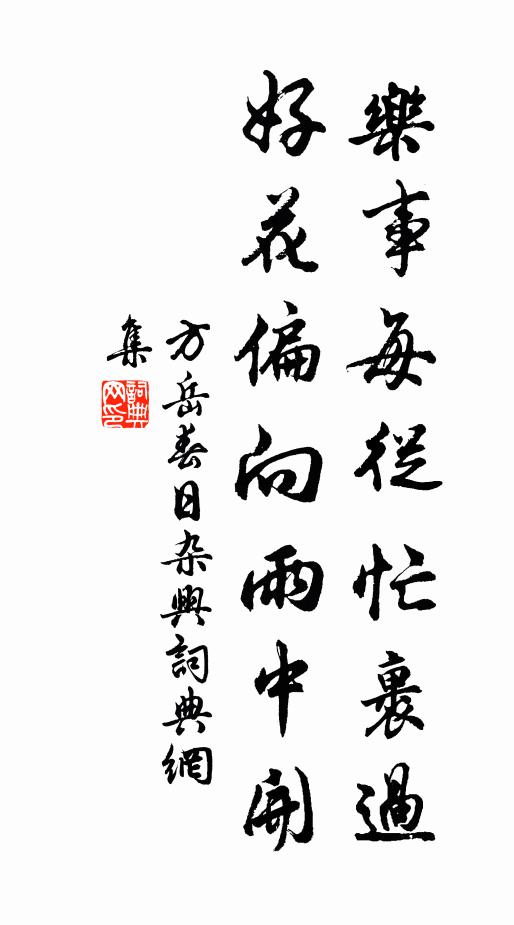 樂事每從忙裹過
好花偏向雨中開
方岳春日杂興詞典網
集
詞典網印